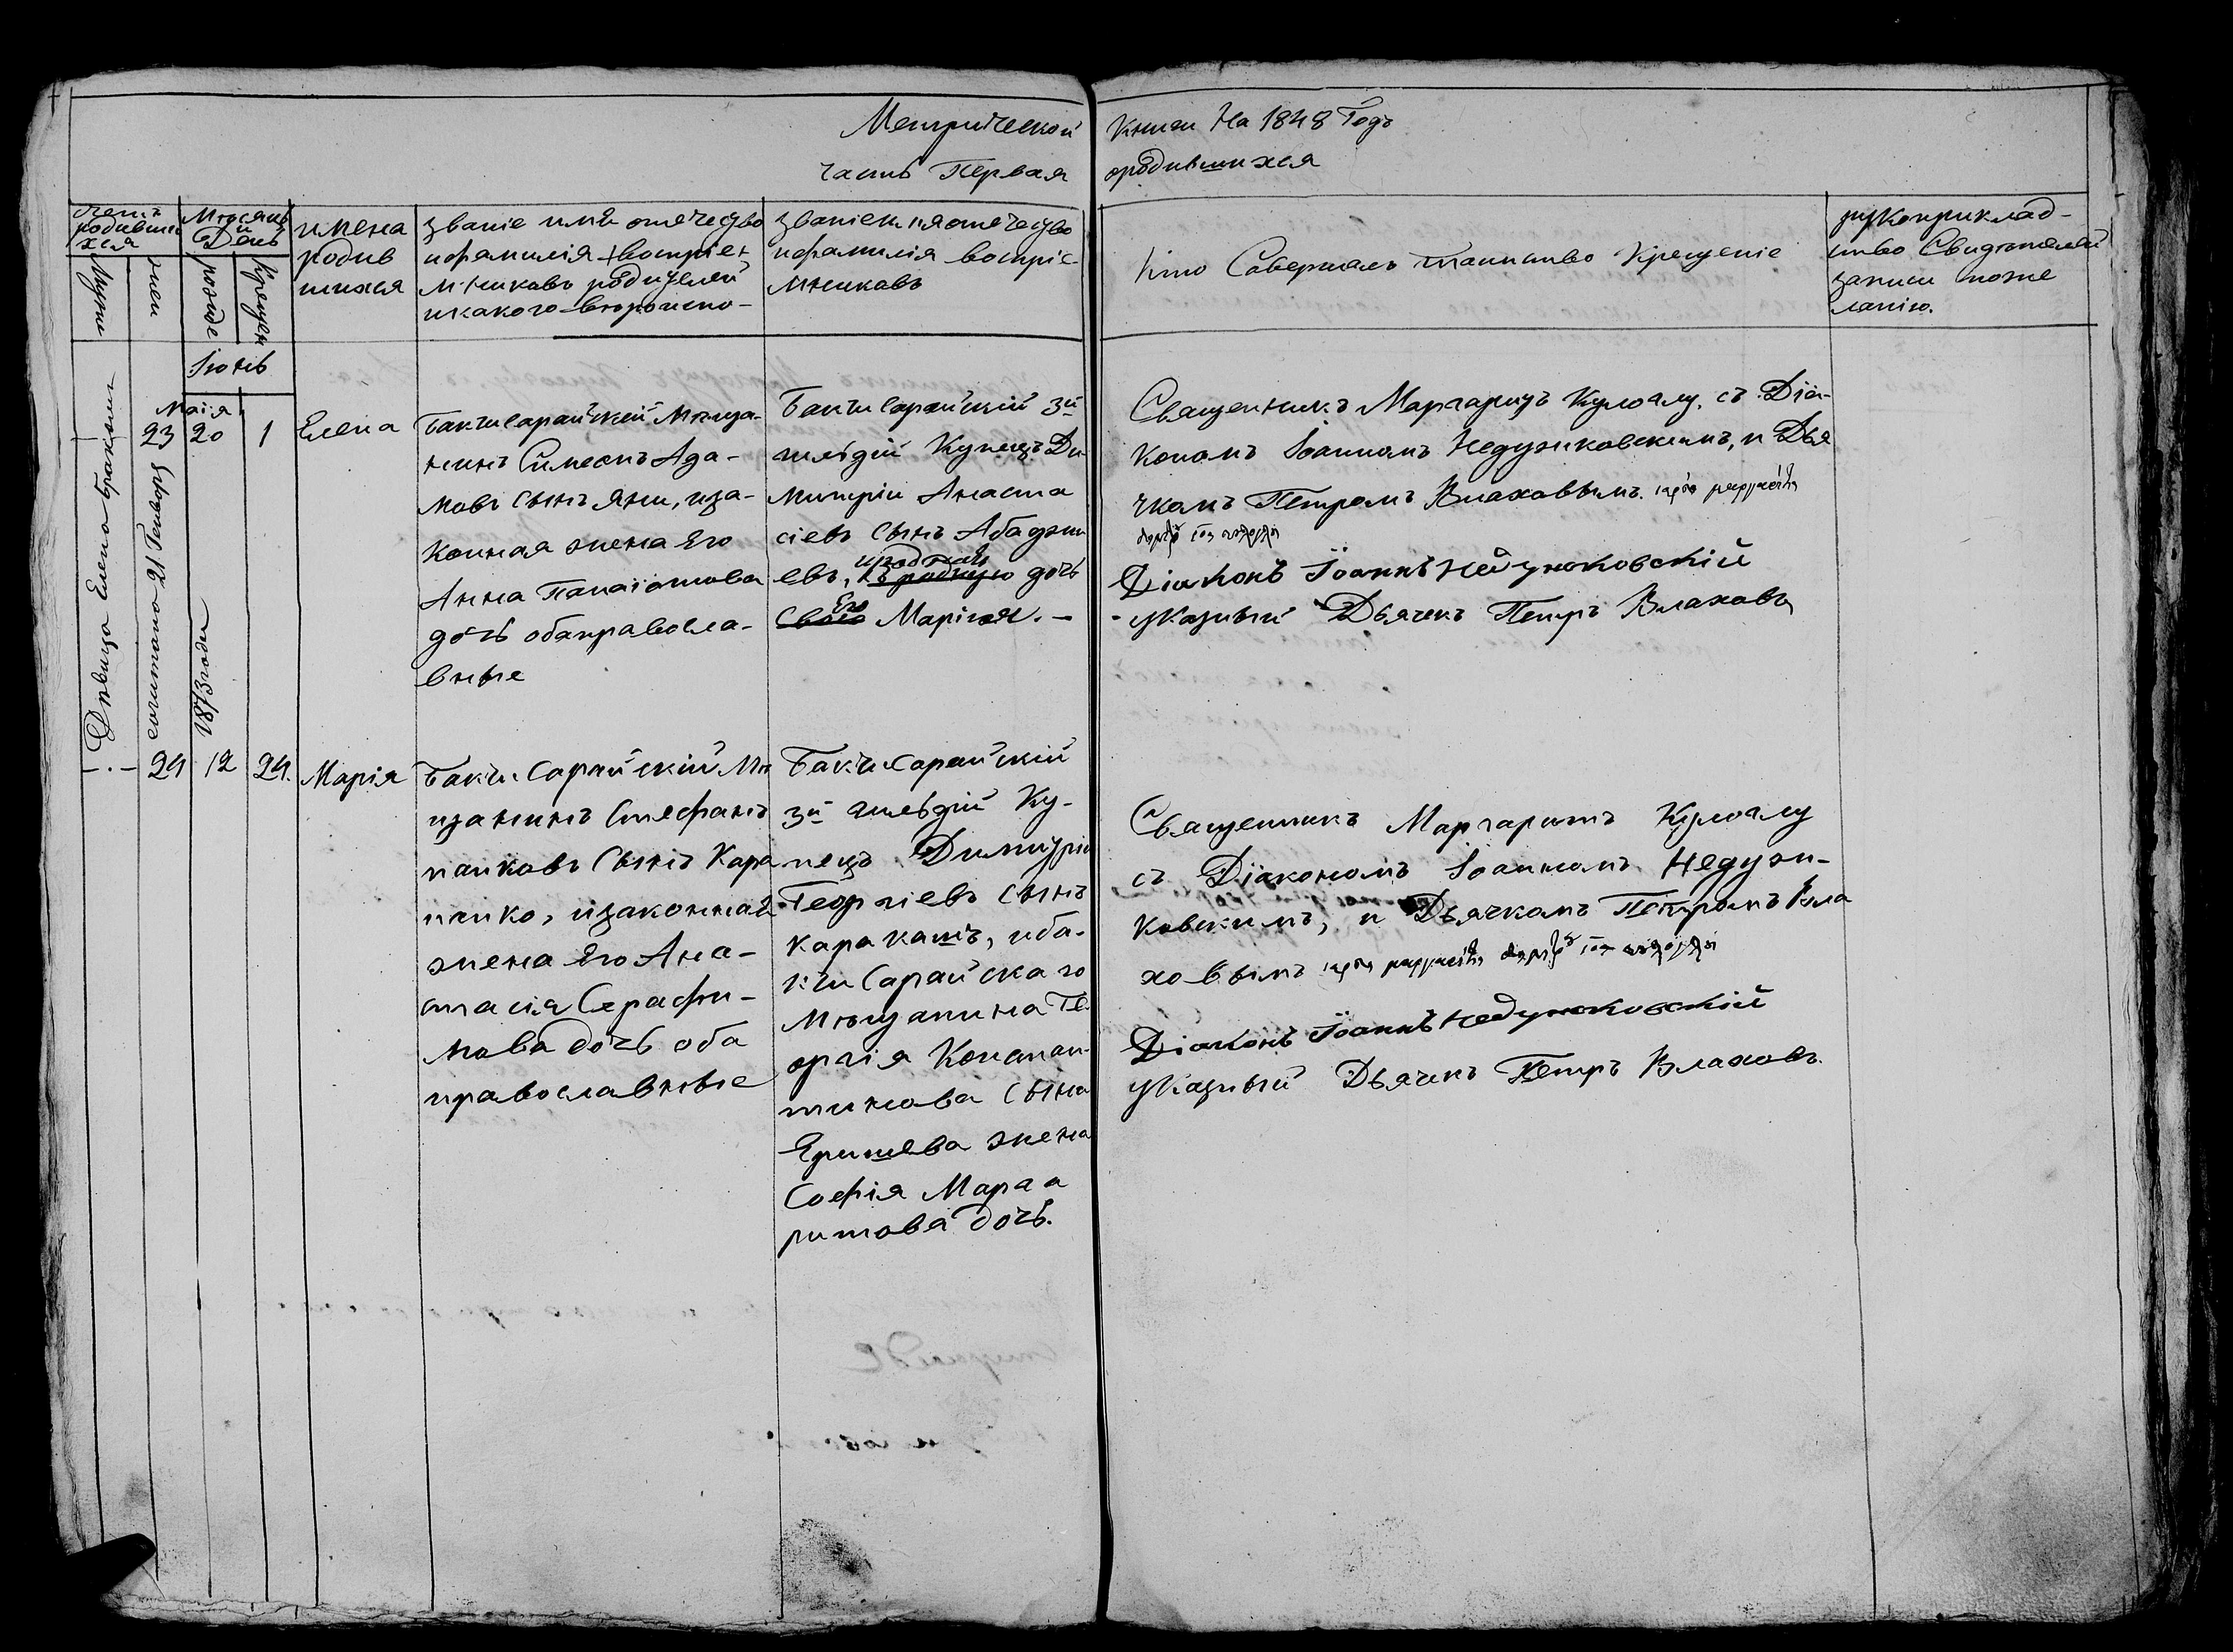 Метрической Книги На 1848 Годъ
часть Первая ородившихся
счетъ
родивши
хся
Мѣсяцъ
и
День
имена
родив
шихся
званіе имя отечество
ифамилія +воспріе+
мниковъ родителей
икакого вѣроиспо-
званіеимяотечество
ифамилія воспріе-
мниковъ
Кто Совершалъ таинство Крещеніе
рукоприклад-
ство Свидѣтелей
записи поже
ланію.
женск
рожде
Крещен
Іюнь
Маія
23 20 1
Елена
Бакчисарайскій Мѣща-
нинъ Симеонъ Ада-
мовъ сынъ Яни, иза-
конная жена Его
Анна Панаіотова
дочь обаправосла-
вные
Бакчисарайскій 3й
гильдіи Купецъ Ди-
митрій Анаста
сіевъ сынъ Абаджи
евъ, иродная дочь
Его Марігоя. -
Священникъ Маргаритъ Кулоглу, съ Діа-
кономъ Іоанномъ Недзуниковскимъ, и Дья
чкомъ Петромъ Влаховымъ.
Діаконъ Іоаннъ
указный Дьячекъ Петръ Влаховъ
Дѣвица Елена бракомъ
сочитана 21 Генваря
1873 года
24 12 24.
Марія
Бакчисарайскій Мѣ
щанинъ Стефанъ
панковъ Сынъ Кара
панко, изаконная
жена Его Ана-
стасія Серафи-
мова дочь оба
православные
Бакчисарайскій
3й гильдіи Ку-
пецъ Димитрій
Георгіевъ Сынъ
каракашъ, иба-
кчисарайскаго
Мѣщанина Ге-
оргія Констан-
тинова Сына
жена
Софія Марга
ритова дочь.
Священникъ Маргаритъ Кулоглу
съ Діакономъ Іоанномъ
и Дьячкомъ Петромъ Вла
ховымъ
Діаконъ Іоаннъ
указный Дьячекъ Петръ Влаховъ.